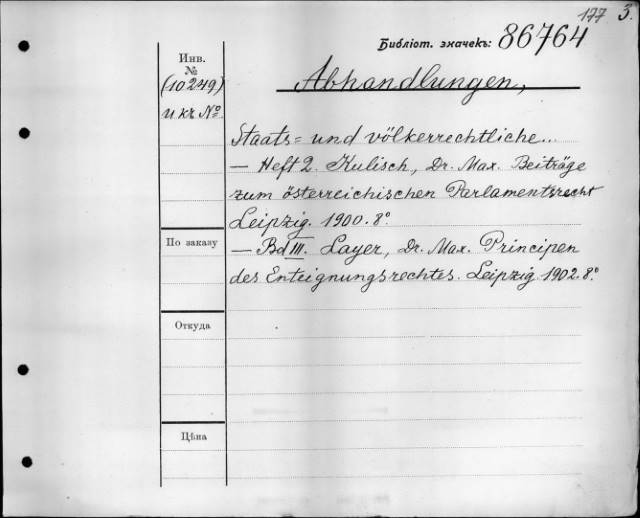 177 3.
Библіот. значекъ: 86764
Инв.
№
(10249)
и кк №
Abhandlungen,
Staats= und völkerrechtliche...
— Heft 2. Kulisch, Dr. Max. Beiträge
zum österreichischen Parlamentsrecht
Leipzig. 1900. 8º
По заказу
— Bd III. Layer, Dr. Max. Principen
des Enteignungsrechtes. Leipzig 1902. 8º
Откуда
Цѣна